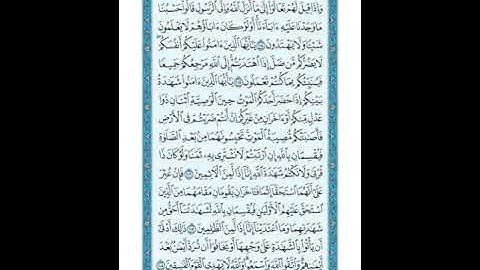 وَإِذَا قِيلَ لَهُمْ تَعَالَوْا۟ إِلَىٰ مَآ أَنزَلَ ٱللَّهُ وَإِلَى ٱلرَّسُولِ قَالُوا۟ حَسْبُنَا
مَا وَجَدْنَا عَلَيْهِ ءَابَآءَنَآ أَوَلَوْ كَانَ ءَابَآؤُهُمْ لَا يَعْلَمُونَ
شَيْـًٔا وَلَا يَهْتَدُونَ ١٠٤ يَـٰٓأَيُّهَا ٱلَّذِينَ ءَامَنُوا۟ عَلَيْكُمْ أَنفُسَكُمْ
لَا يَضُرُّكُم مَّن ضَلَّ إِذَا ٱهْتَدَيْتُمْ إِلَى ٱللَّهِ مَرْجِعُكُمْ جَمِيعًا
فَيُنَبِّئُكُم بِمَا كُنتُمْ تَعْمَلُونَ ١٠٥ يَـٰٓأَيُّهَا ٱلَّذِينَ ءَامَنُوا۟ شَهَـٰدَةُ
بَيْنِكُمْ إِذَا حَضَرَ أَحَدَكُمُ ٱلْمَوْتُ حِينَ ٱلْوَصِيَّةِ ٱثْنَانِ ذَوَا
عَدْلٍ مِّنكُمْ أَوْ ءَاخَرَانِ مِنْ غَيْرِكُمْ إِنْ أَنتُمْ ضَرَبْتُمْ فِى ٱلْأَرْضِ
فَأَصَـٰبَتْكُم مُّصِيبَةُ ٱلْمَوْتِ تَحْبِسُونَهُمَا مِنۢ بَعْدِ ٱلصَّلَوٰةِ
فَيُقْسِمَانِ بِٱللَّهِ إِنِ ٱرْتَبْتُمْ لَا نَشْتَرِى بِهِۦ ثَمَنًا وَلَوْ كَانَ ذَا
قُرْبَىٰ وَلَا نَكْتُمُ شَهَـٰدَةَ ٱللَّهِ إِنَّآ إِذًا لَّمِنَ ٱلْـَٔاثِمِينَ ١٠٦ فَإِنْ عُثِرَ
عَلَىٰٓ أَنَّهُمَا ٱسْتَحَقَّآ إِثْمًا فَـَٔاخَرَانِ يَقُومَانِ مَقَامَهُمَا مِنَ ٱلَّذِينَ
ٱسْتَحَقَّ عَلَيْهِمُ ٱلْأَوْلَيَـٰنِ فَيُقْسِمَانِ بِٱللَّهِ لَشَهَـٰدَتُنَآ أَحَقُّ مِن
شَهَـٰدَتِهِمَا وَمَا ٱعْتَدَيْنَآ إِنَّآ إِذًا لَّمِنَ ٱلظَّـٰلِمِينَ ١٠٧ ذَٰلِكَ أَدْنَىٰٓ
أَن يَأْتُوا۟ بِٱلشَّهَـٰدَةِ عَلَىٰ وَجْهِهَآ أَوْ يَخَافُوٓا۟ أَن تُرَدَّ أَيْمَـٰنٌۢ بَعْدَ
أَيْمَـٰنِهِمْ وَٱتَّقُوا۟ ٱللَّهَ وَٱسْمَعُوا۟ وَٱللَّهُ لَا يَهْدِى ٱلْقَوْمَ ٱلْفَـٰسِقِينَ ١٠٨